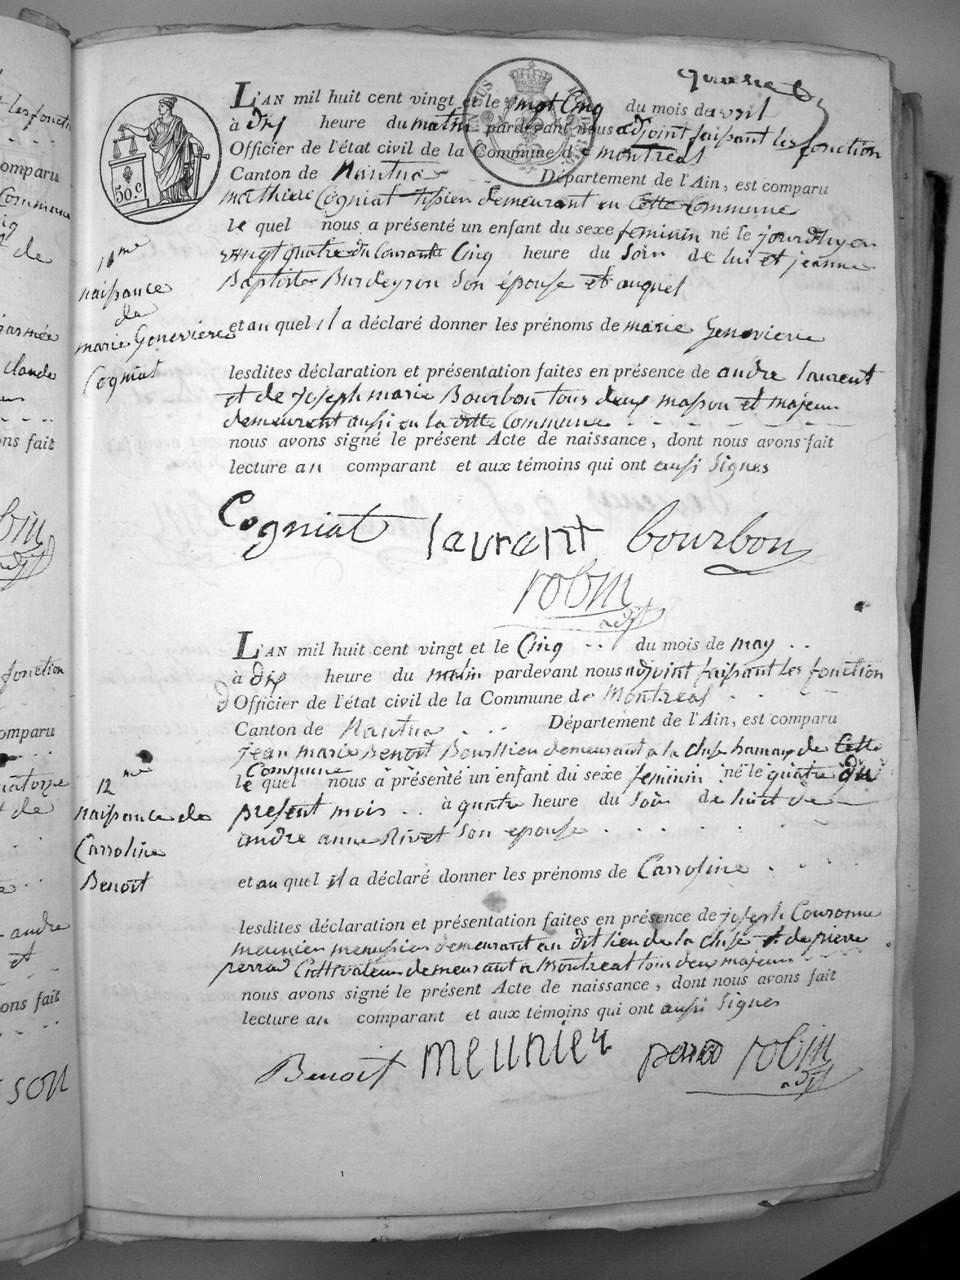 50.c
L'AN mil huit cent vingt et le vingt Cinq du mois de avril
à dix heure du matin pardevant nous adjoint faisant les fonction
Officier de l'état civil de la Commune de montreal
Canton de Nantua Département de l'Ain, est comparu
mathieu Cogniat tissier demeurant en Cette Commune
le quel nous a présenté un enfant du sexe feminin né le jourdhyer
vingt quatre du Courant à Cinq heure du soir de lui et jeanne
Baptiste Burdeyron son épouse et auquel
et au quel il a déclaré donner les prénoms de marie Genevieve
lesdites déclaration et présentation faites en présence de andre laurent
et de joseph marie Bourbon tous deux masson et majeur
demeurant aussi en la ditte Commune
nous avons signé le présent Acte de naissance, dont nous avons fait
lecture au comparant et aux témoins qui ont aussi signes
11me
naissance
de
marie Genevieve
Cogniat
Cogniat laurant bourbon
robin
adj
L'AN mil huit cent vingt et le Cinq du mois de may
à dix heure du matin pardevant nous adjoint faisant les fonction
d'Officier de l'état civil de la Commune de Montreal
Canton de Nantua Département de l'Ain, est comparu
jean marie Benoit demeurant a la Cluse hamaux de Cette
Commune
le quel nous a présenté un enfant du sexe feminin né le quatre du
present mois à quatre heure du soir de luit de
andre anne Rivet son epouse
et au quel il a déclaré donner les prénoms de Carroline
lesdites déclaration et présentation faites en présence de joseph Couronne
meunier menusier demeurant au dit lieu de la Cluse et de pierre
perrad Cultivateur demeurant a Montreal tous deux majeur
nous avons signé le présent Acte de naissance, dont nous avons fait
lecture au comparant et aux témoins qui ont aussi signes
12me
naissance de
Carroline
Benoit
Benoit meunier robin
adj